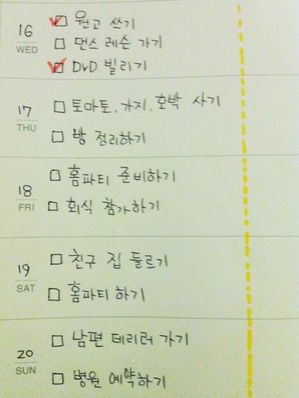 16 ☑ 원고 쓰기
WED ☐ 댄스 레슨 가기
☑ DVD 빌리기
17 ☐ 토마토, 가지, 호박 사기
THU ☐ 방 정리하기
☐ 홈파티 준비하기
18 ☐ 회식 참가하기
FRI
19 ☐ 친구 집 들르기
SAT ☐ 홈파티 하기
☐ 남편 데리러 가기
20
SUN ☐ 병원 예약하기